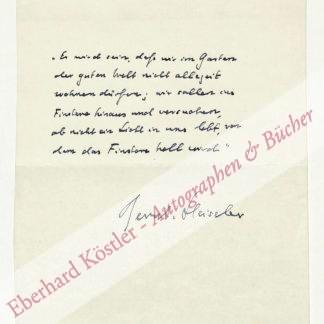 „Es wird sein, daß wir im Garten
der guten Welt nicht allezeit
wohnen dürfen; wir sollen ins
Finstere hinaus und versuchen,
ob nicht ein Licht in uns lebt, von
dem das Finstere hell wird“
Bernt v. Heiseler
Eberhard Köstler - Autographen & Bücher